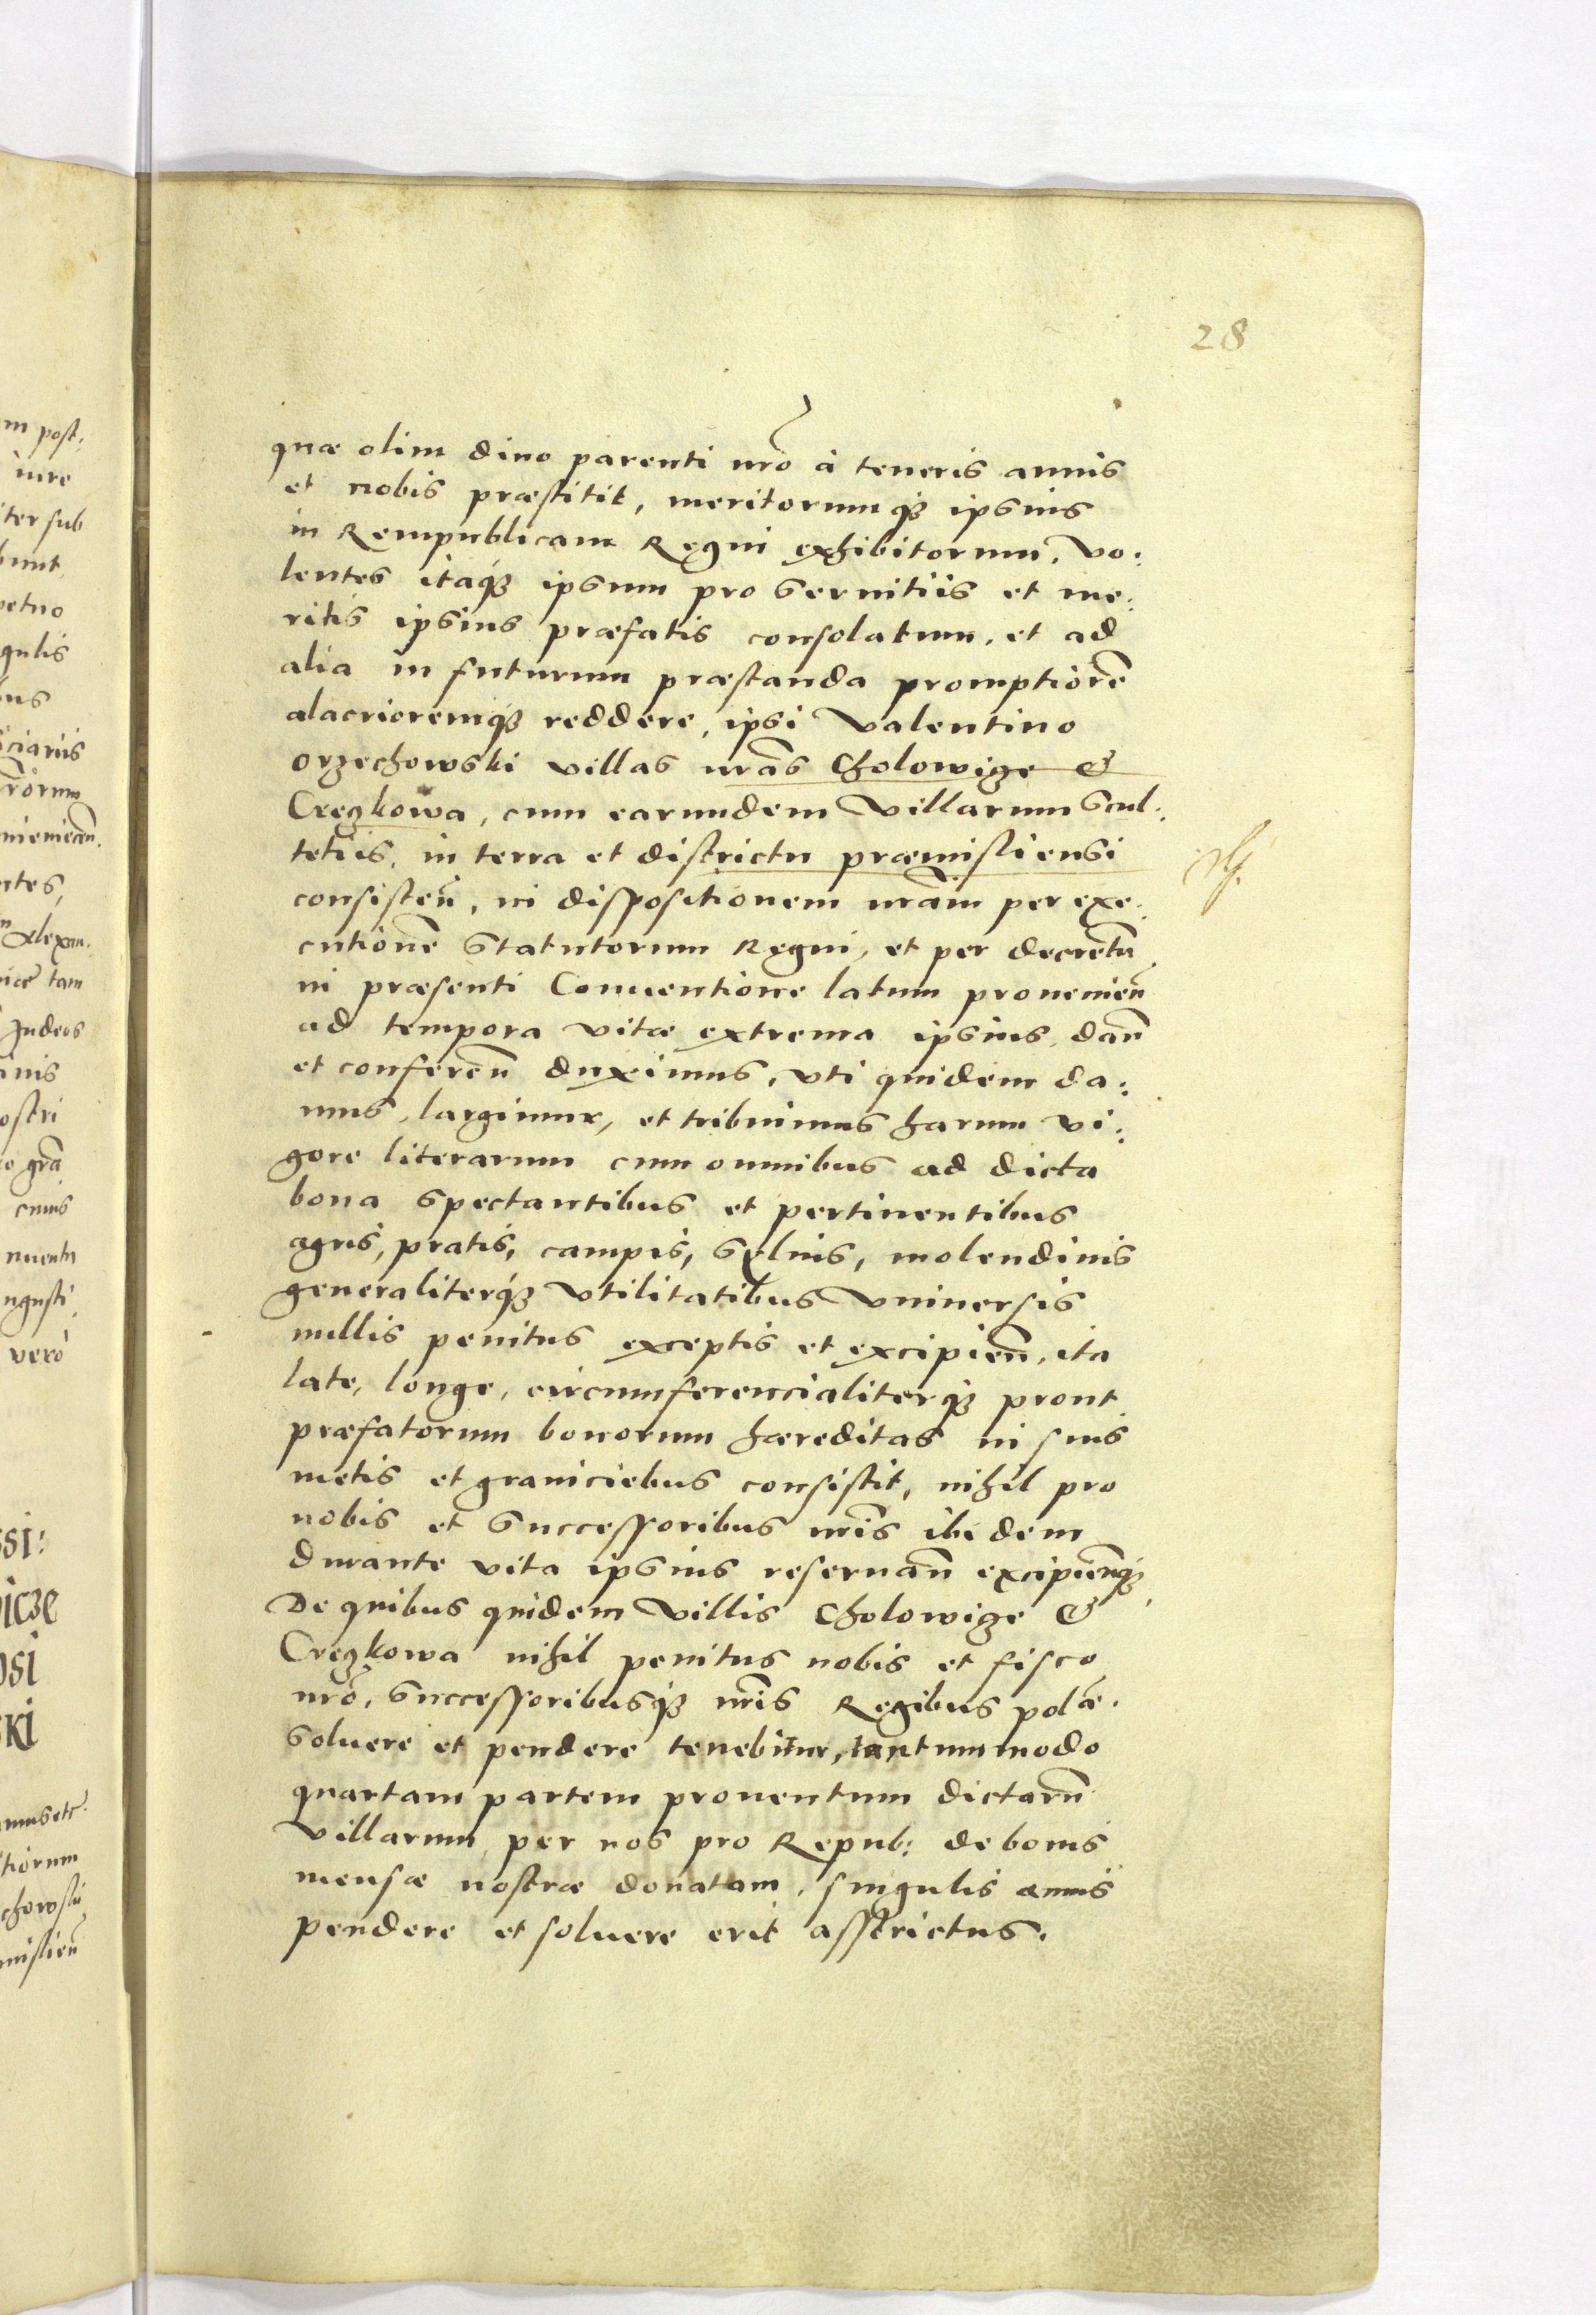 28
quæ olim diuo parenti nr̃o à teneris annis
et nobis præstitit, meritorumq̃ ipsius
in Rempublicam Regni exhibitorum. Vo:
lentes itaq̃ ipsum pro seruitiis et me:
ritis ipsius præfatis consolatum, et ad
alia in futurum præstanda promptiorẽ
alacrioremq̃ reddere, ipsi Valentino
Orzechowski villas nr̃as Cholowize &
Cręzkowa, cum earumdem Villarum scul:
tetiis, in terra et districtu præmisliensi
consisteñ, in dispositionem nr̃am per exe:
cutionẽ statutorum Regni, et per decretũ
in præsenti Conuentione latum prouenieñ
ad tempora vitæ extrema ipsius, dañ
et confereñ duximus, vti quidem da:
mus, largimur, et tribuimus harum vi:
gore literarum cum omnibus ad dicta
bona spectantibus et pertinentibus
agris, pratis, campis, syluis, molendinis
generaliterq̃ vtilitatibus vniuersis
nullis penitus exceptis et excipieñ, ita
late, longe, circumferencialiterq̃ prout
præfatorum bonorum hæreditas in suis
metis et graniciebus consistit, nihil pro
nobis et successoribus nr̃is ibidem
durante vita ipsius reseruañ excipieñq̃
De quibus quidem villis Cholowize &
Cręzkowa nihil penitus nobis et fisco
nr̃o, successoribusq̃ nr̃is Regibus polæ.
soluere et pendere tenebitur, tantummodo
quartam partem prouentuum dictarũ
villarum per nos pro Repub: de bonis
mensæ nostræ donatam, singulis annis
pendere et soluere erit asstrictus.